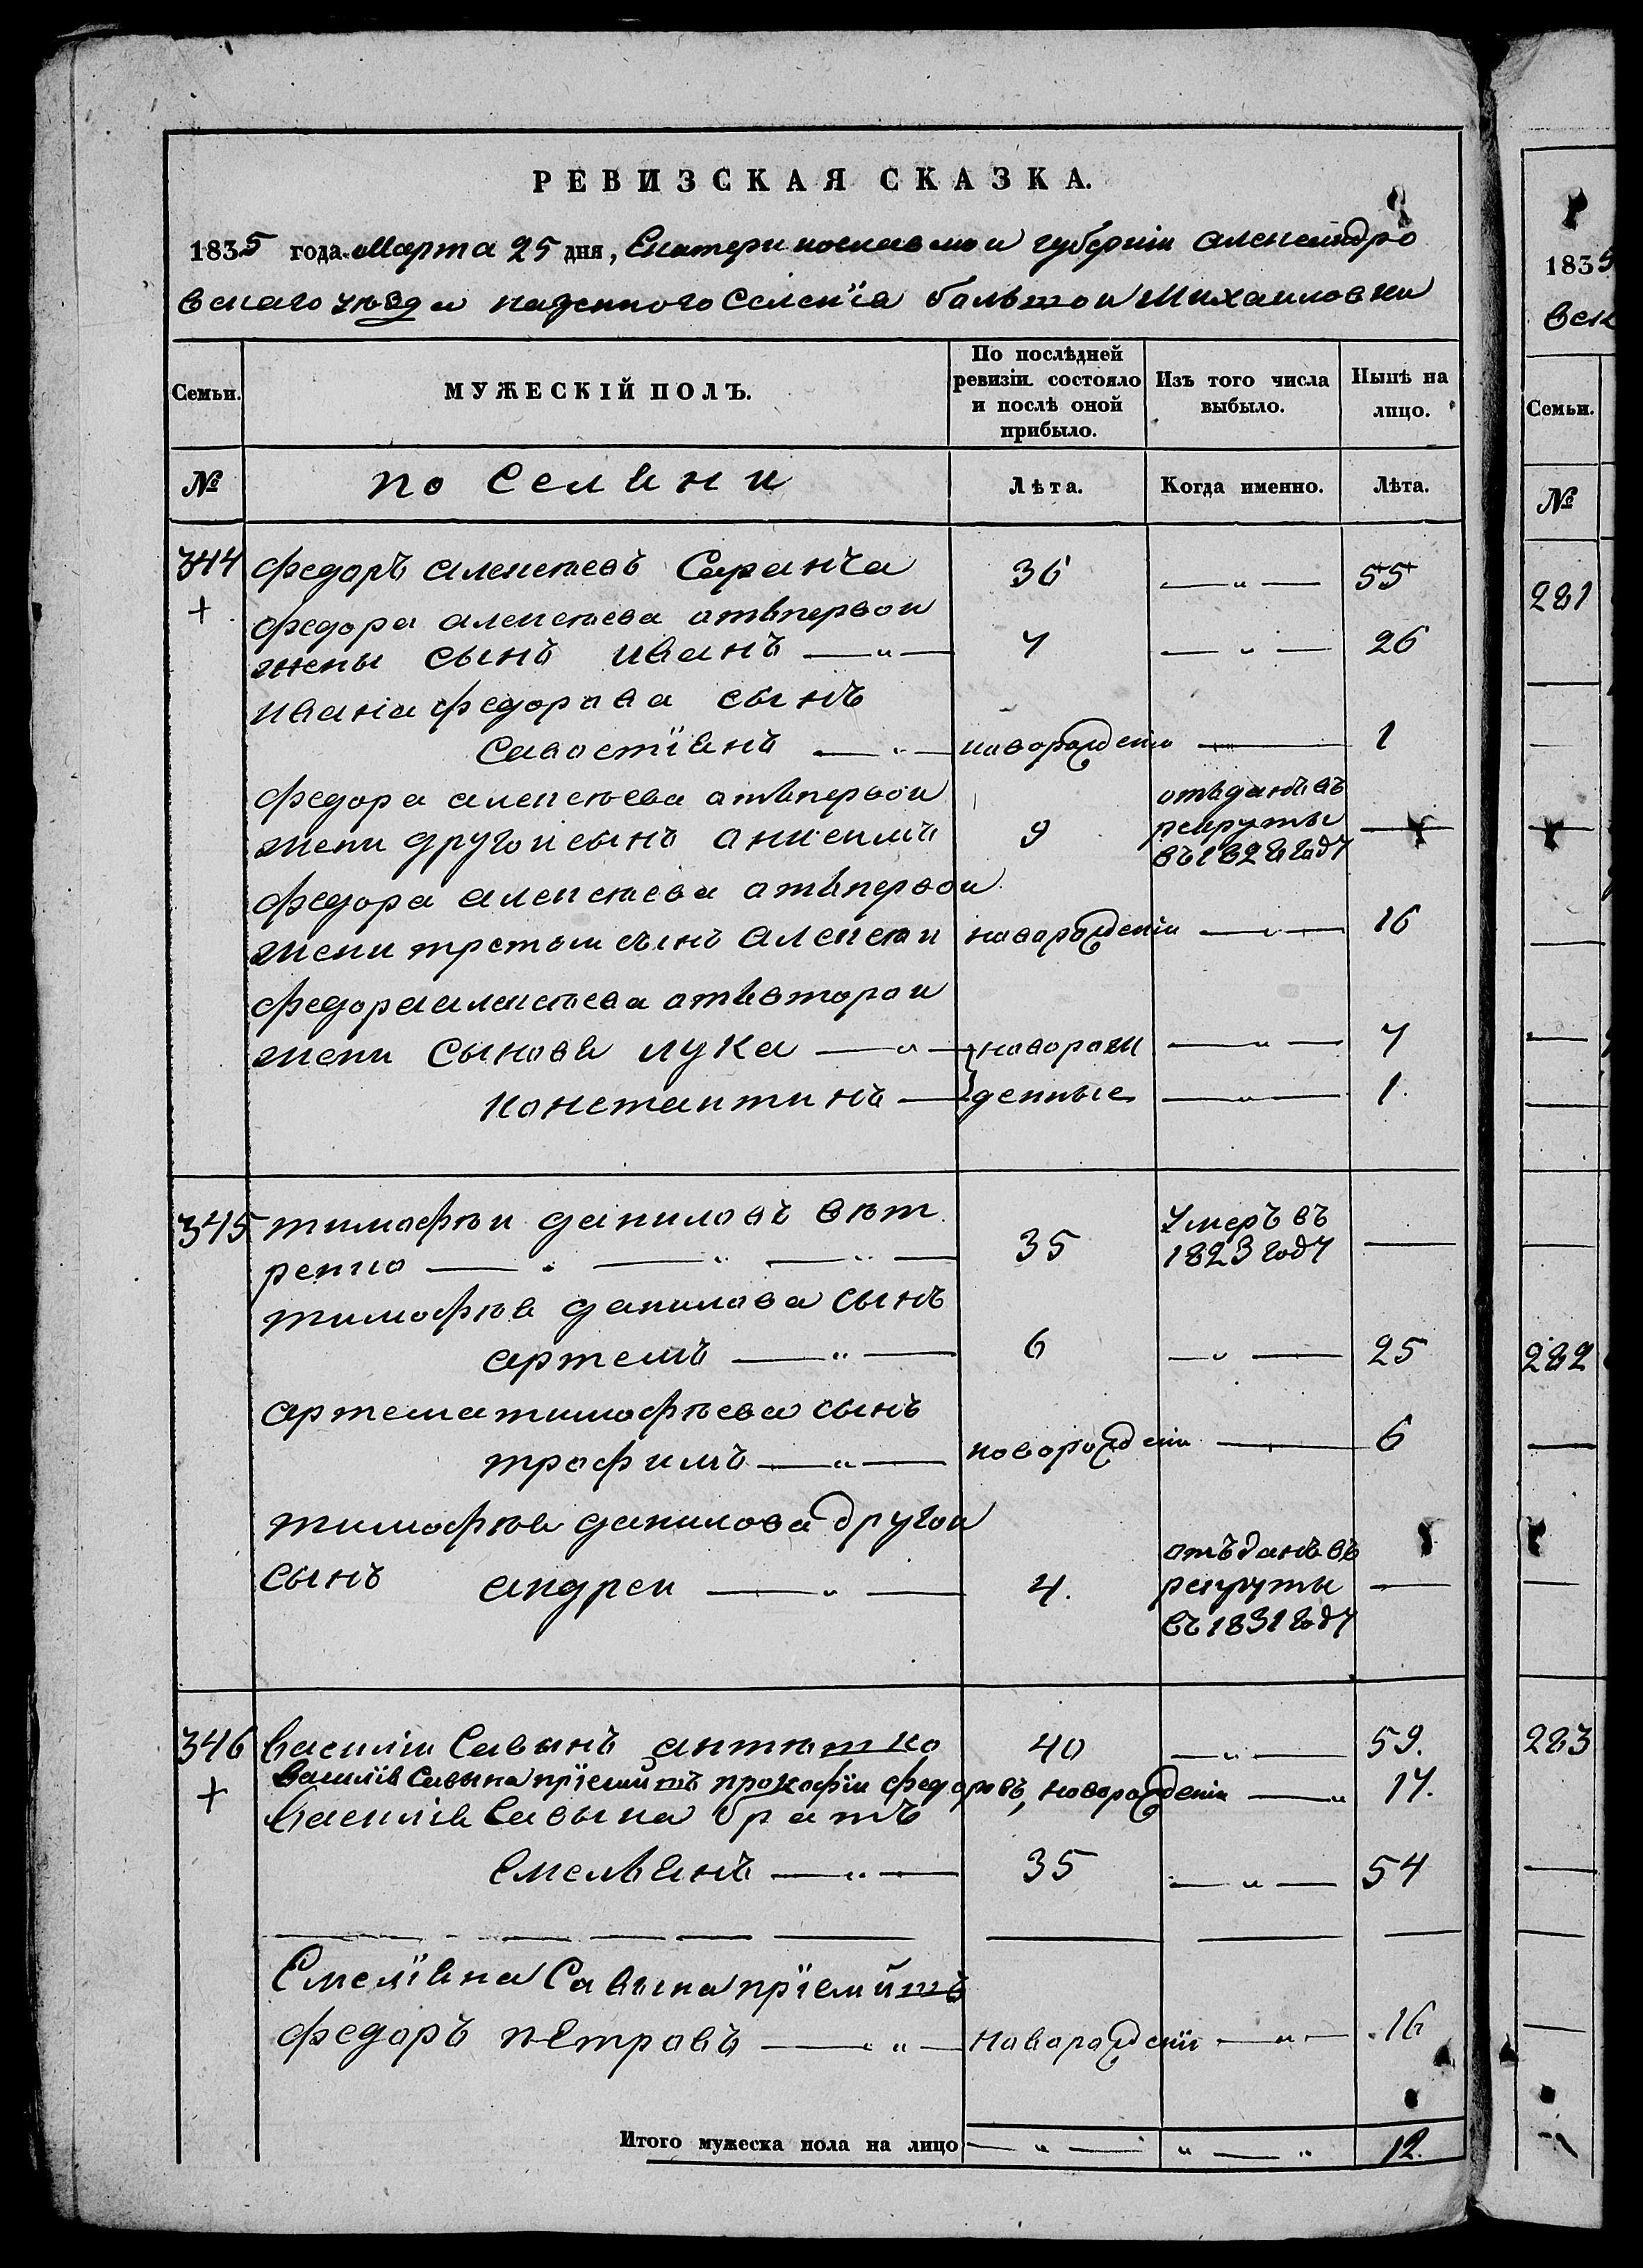 РЕВИЗСКАЯ СКАЗКА.
1835 года Марта 25 дня, Екатеринославской губерніи александро
вскаго уѣзда казенного Селенїя большой Михаиловки
Семьи.
МУЖЕСКІЙ ПОЛЪ.
По послѣдней ревизіи состояло и послѣ оной прибыло.
Изъ того числа выбыло.
Нынѣ на лицо.
№
поселяни
Лѣта.
Когда именно.
Лѣта.
344 федоръ алексѣевъ Саранча 36 — „ — 55
+
федора алексѣева отъпервои
жены сынъ иванъ — „ — 7 — „ — 26
ивана федорова сынъ
Савостїянъ — „ — новорожденїи — 1
федора алексѣева отъпервои
жени другои сынъ анисимъ 9 отъданъ въ рекруты въ 1828 году —
федора алексѣева отъпервои
жени третьи сынъ алексѣи новорожденїи — „ — 16
федора алексѣева отъвторои
жени сыновя лука — „ — новорож — „ — 7
константинъ — денные — „ — 1.
345 тимофѣи даниловъ вѣт
ренко — „ — „ — „ — 35 Умеръ въ 1823 году —
тимофѣя данилова сынъ
артемъ — „ — 6 — „ — 25
артема тимофѣева сынъ
трофимъ — „ — новорожденїи — 6
тимофѣя данилова другои
сынъ андреи — „ — 4. отъданъ въ рекруты въ 1831 году —
346 василіи Савынъ антюшко 40 — „ — 59.
+
Василїя Савына прїемышъ прокофїи федоровъ, новорожденїи — „ 17.
василїя Савына братъ
Емельянъ — „ — 35 — „ — 54
Емелїяна Савына прїемышъ
федоръ пЕтровъ — „ — новорожденїи — „ — 16
Итого мужеска пола на лицо — „ — „ — „ 12.
1835
вск
Семьи.
№
281
282
283